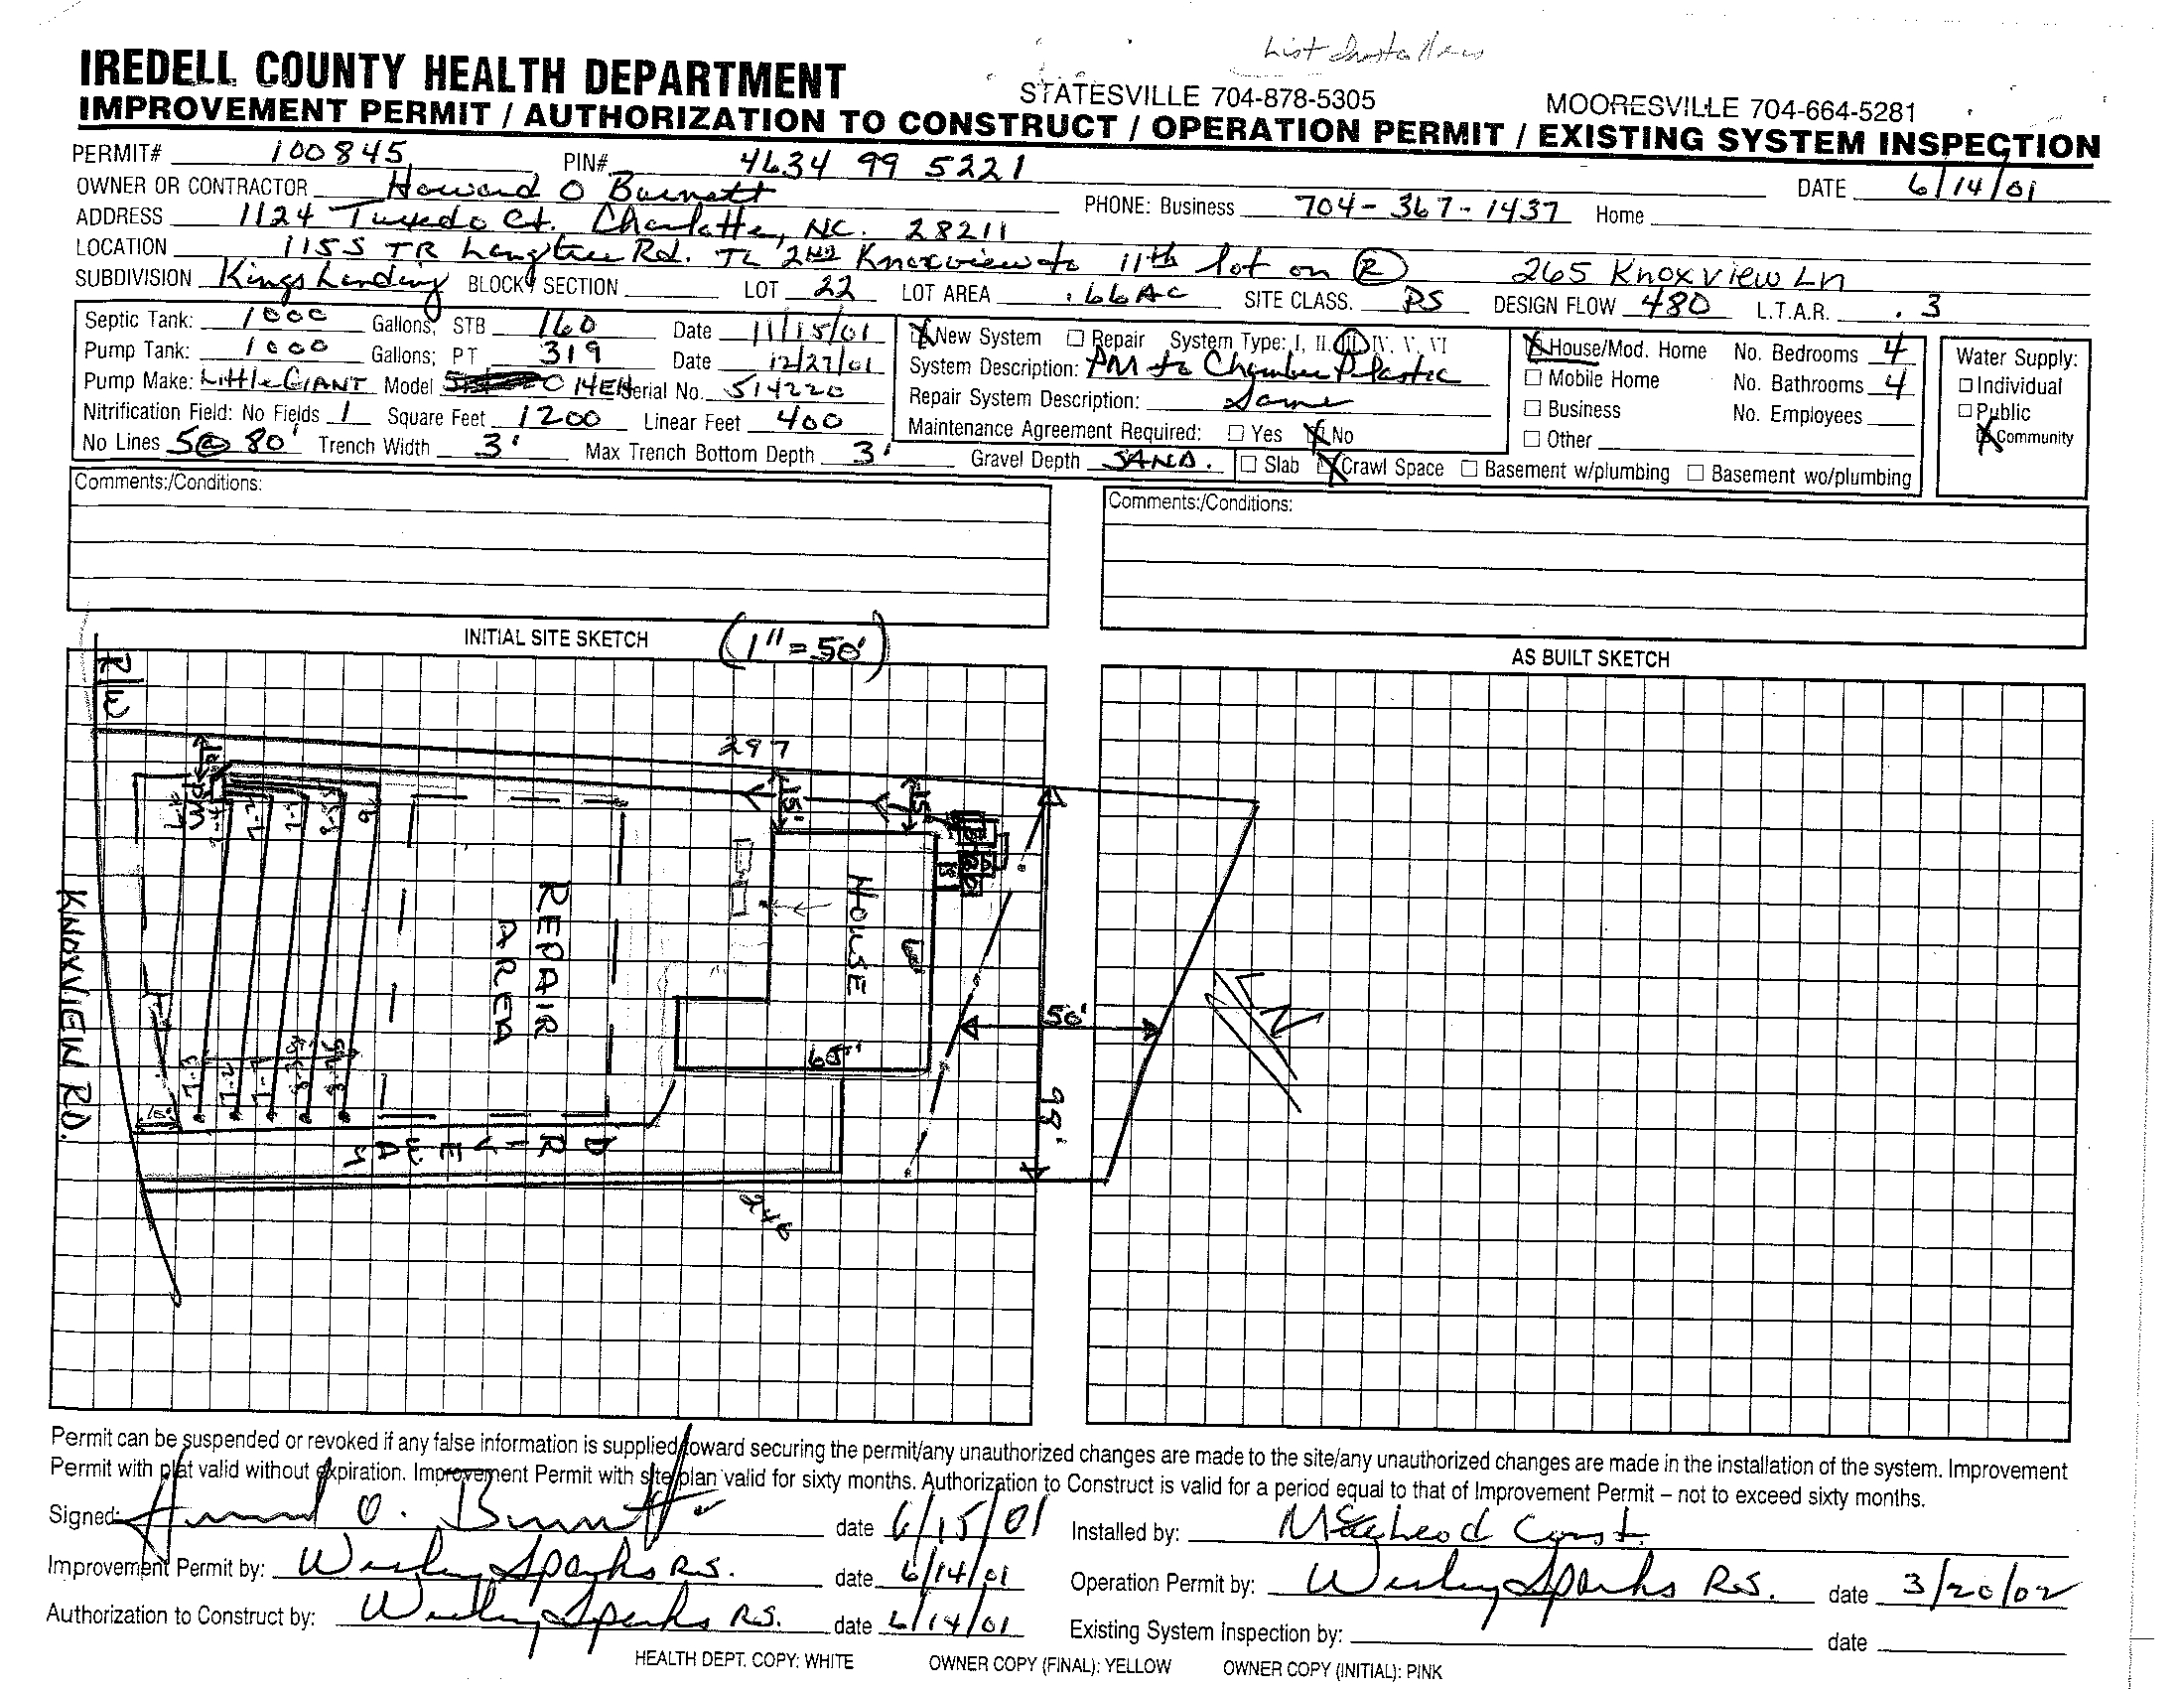 List Installers
IREDELL COUNTY HEALTH DEPARTMENT
STATESVILLE 704-878-5305 MOORESVILLE 704-664-5281
IMPROVEMENT PERMIT / AUTHORIZATION TO CONSTRUCT / OPERATION PERMIT / EXISTING SYSTEM INSPECTION
PERMIT# 100845 PIN# 4634 99 5221
OWNER OR CONTRACTOR Howard O Burnett DATE 6/14/01
ADDRESS 1124 Tuxedo Ct. Charlotte, NC. 28211 PHONE: Business 704-367-1437 Home
LOCATION 115 S TR Langtree Rd. TL 2nd Knoxview to 11th lot on R 265 Knoxview Ln
SUBDIVISION Kings Landing BLOCK SECTION LOT 22 LOT AREA .66 Ac SITE CLASS. PS DESIGN FLOW 480 L.T.A.R. .3
Septic Tank: 1000 Gallons; STB 160 Date 11/15/01
Pump Tank: 1000 Gallons; PT 319 Date 12/27/01
Pump Make: Little GIANT Model 14EH Serial No. 514220
Nitrification Field: No Fields 1 Square Feet 1200 Linear Feet 400
No Lines 5@80' Trench Width 3' Max Trench Bottom Depth 3' Gravel Depth SAND.
New System Repair System Type: I, II, III, IV, V, VI
System Description: PM to Chamber Plastic
Repair System Description: Same
Maintenance Agreement Required: Yes No
House/Mod. Home No. Bedrooms 4
Mobile Home No. Bathrooms 4
Business No. Employees
Other
Slab Crawl Space Basement w/plumbing Basement wo/plumbing
Water Supply:
Individual
Public
Community
Comments:/Conditions:
Comments:/Conditions:
INITIAL SITE SKETCH (1"=50')
AS BUILT SKETCH
R/W
297
15'
15'
REPAIR
AREA
HOUSE
60'
65'
50'
98'
N
KNOXVIEW RD.
7-3
7-2
7-1
240
Permit can be suspended or revoked if any false information is supplied toward securing the permit/any unauthorized changes are made to the site/any unauthorized changes are made in the installation of the system. Improvement
Permit with plat valid without expiration. Improvement Permit with site plan valid for sixty months. Authorization to Construct is valid for a period equal to that of Improvement Permit – not to exceed sixty months.
Signed: Howard O. Burnett date 6/15/01 Installed by: Const.
Improvement Permit by: Wesley Sparks R.S. date 6/14/01 Operation Permit by: Wesley Sparks R.S. date 3/20/02
Authorization to Construct by: Wesley Sparks R.S. date 6/14/01 Existing System Inspection by: date
HEALTH DEPT. COPY: WHITE OWNER COPY (FINAL): YELLOW OWNER COPY (INITIAL): PINK